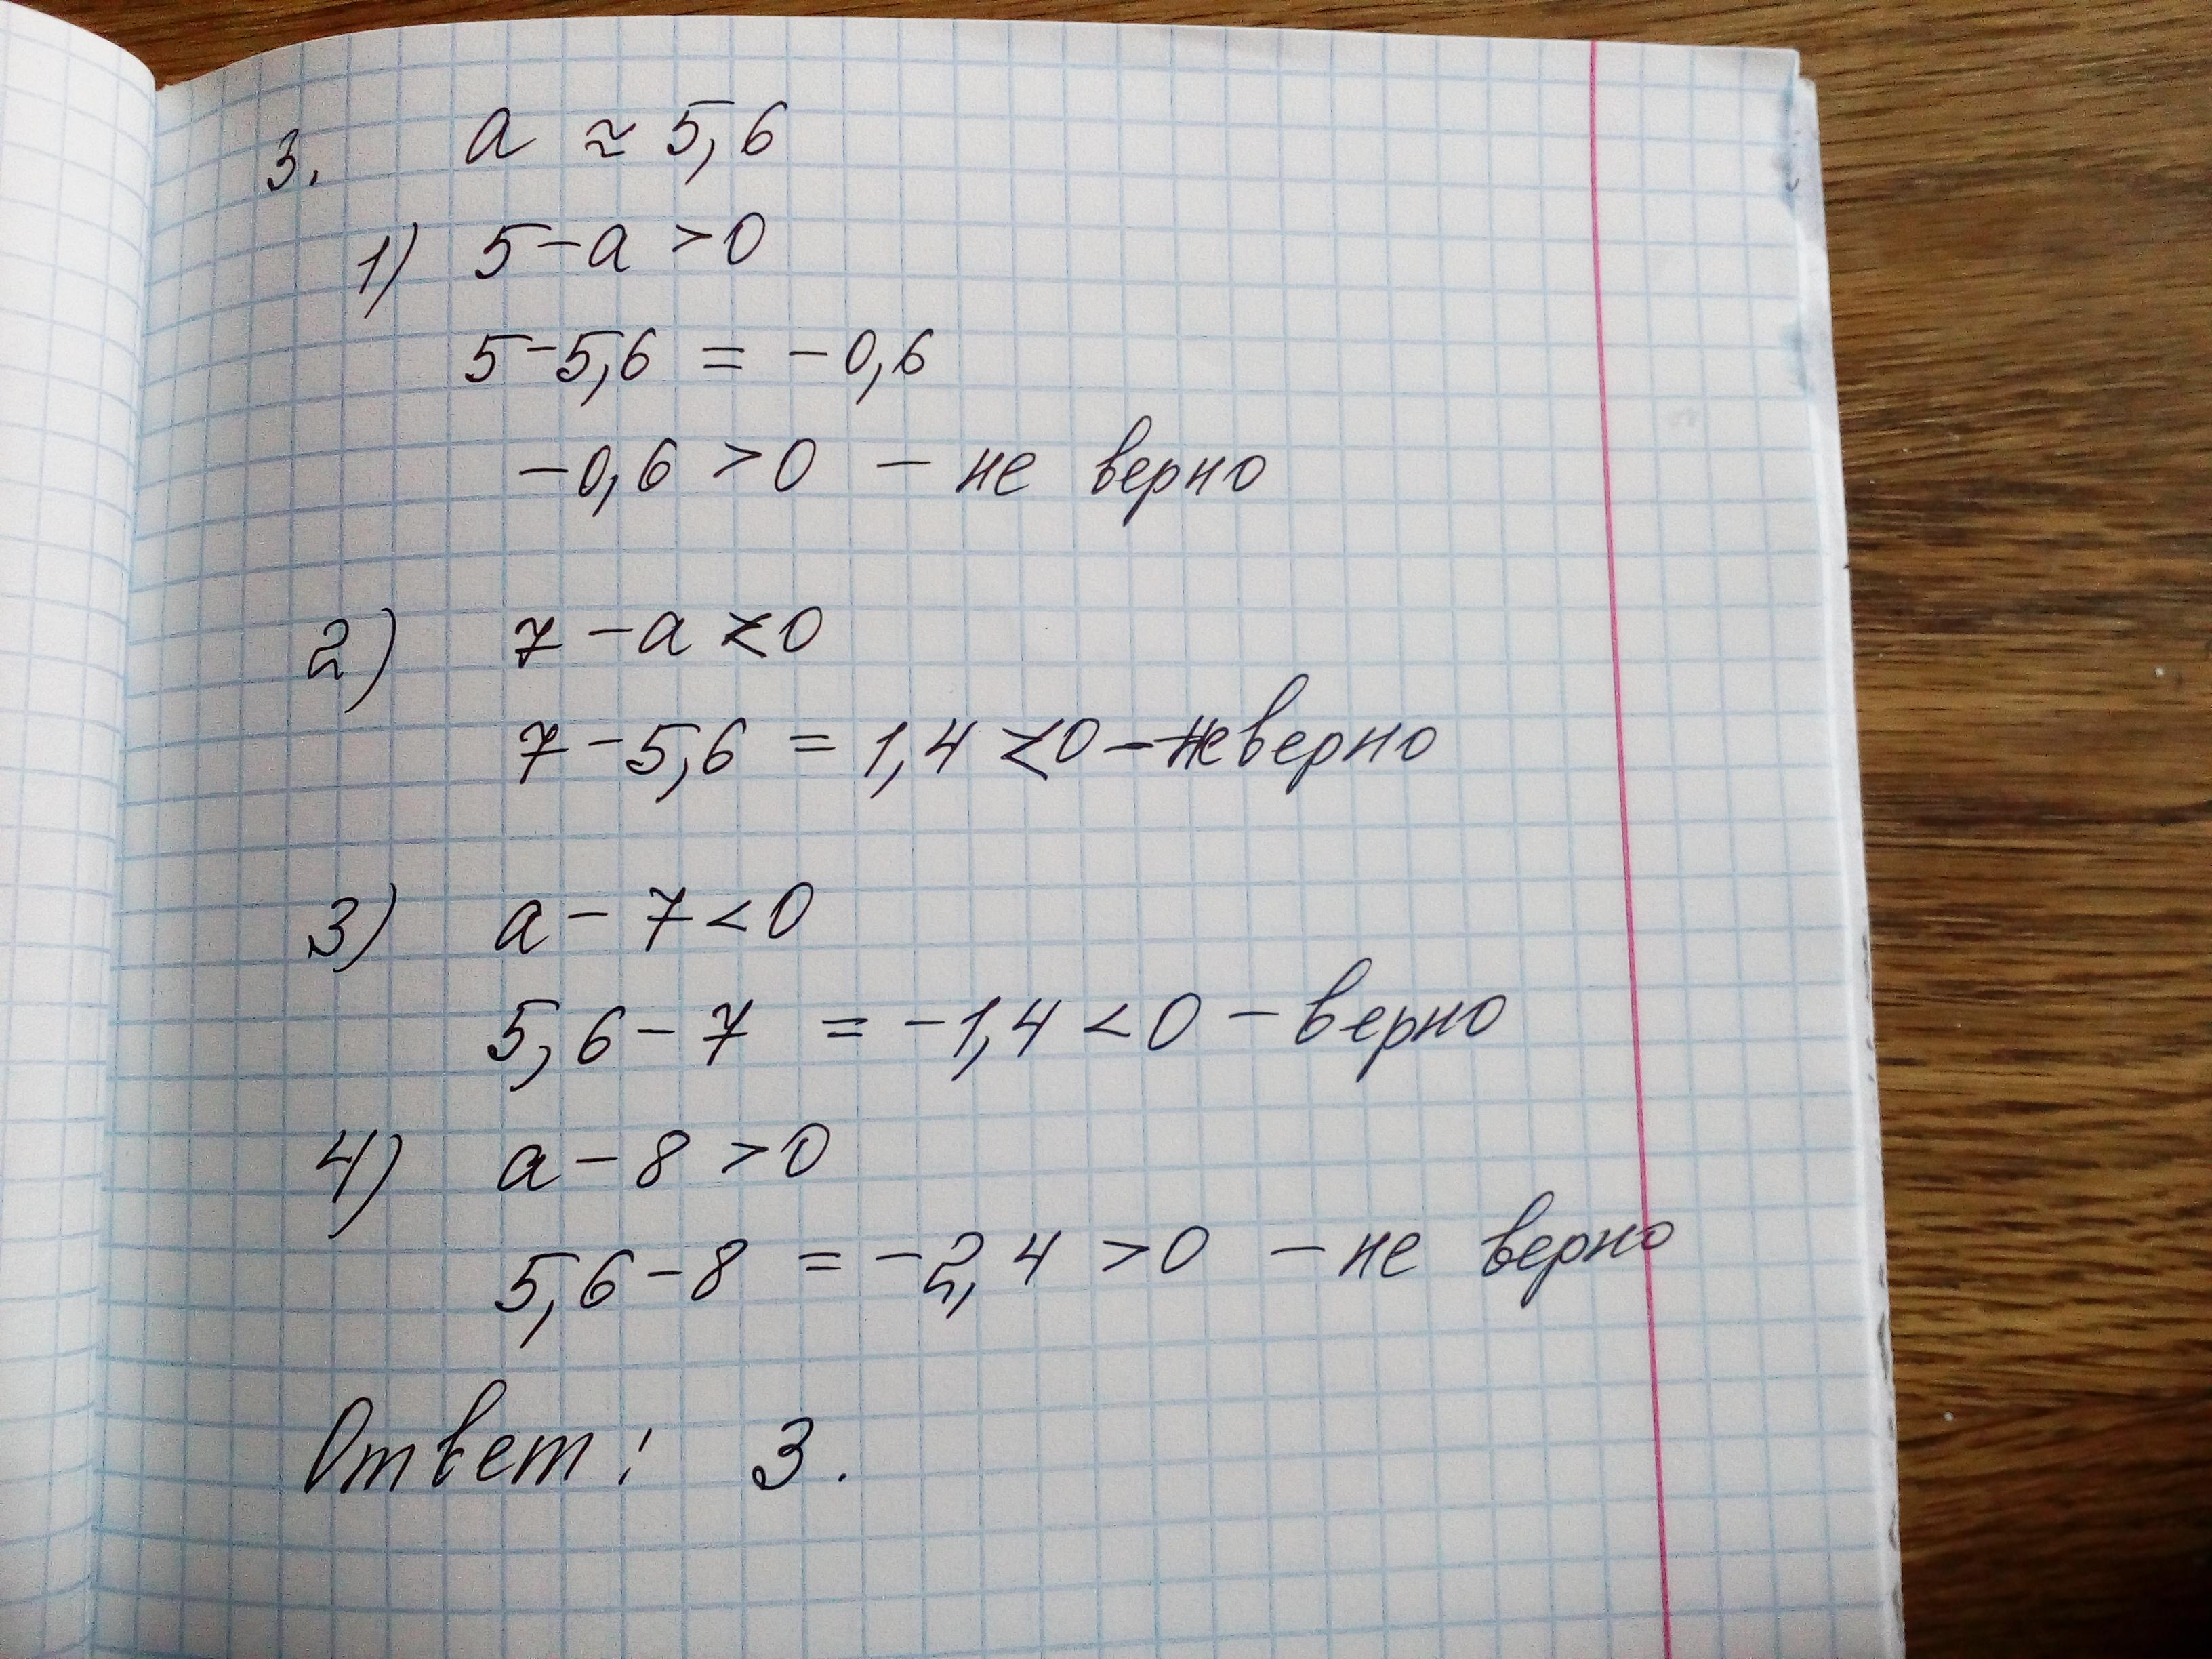 3. a ≈ 5,6
1) 5 - a > 0
5 - 5,6 = -0,6
-0,6 > 0 - не верно
2) 7 - a < 0
7 - 5,6 = 1,4 < 0 - неверно
3) a - 7 < 0
5,6 - 7 = -1,4 < 0 - верно
4) a - 8 > 0
5,6 - 8 = -2,4 > 0 - не верно
Ответ: 3.